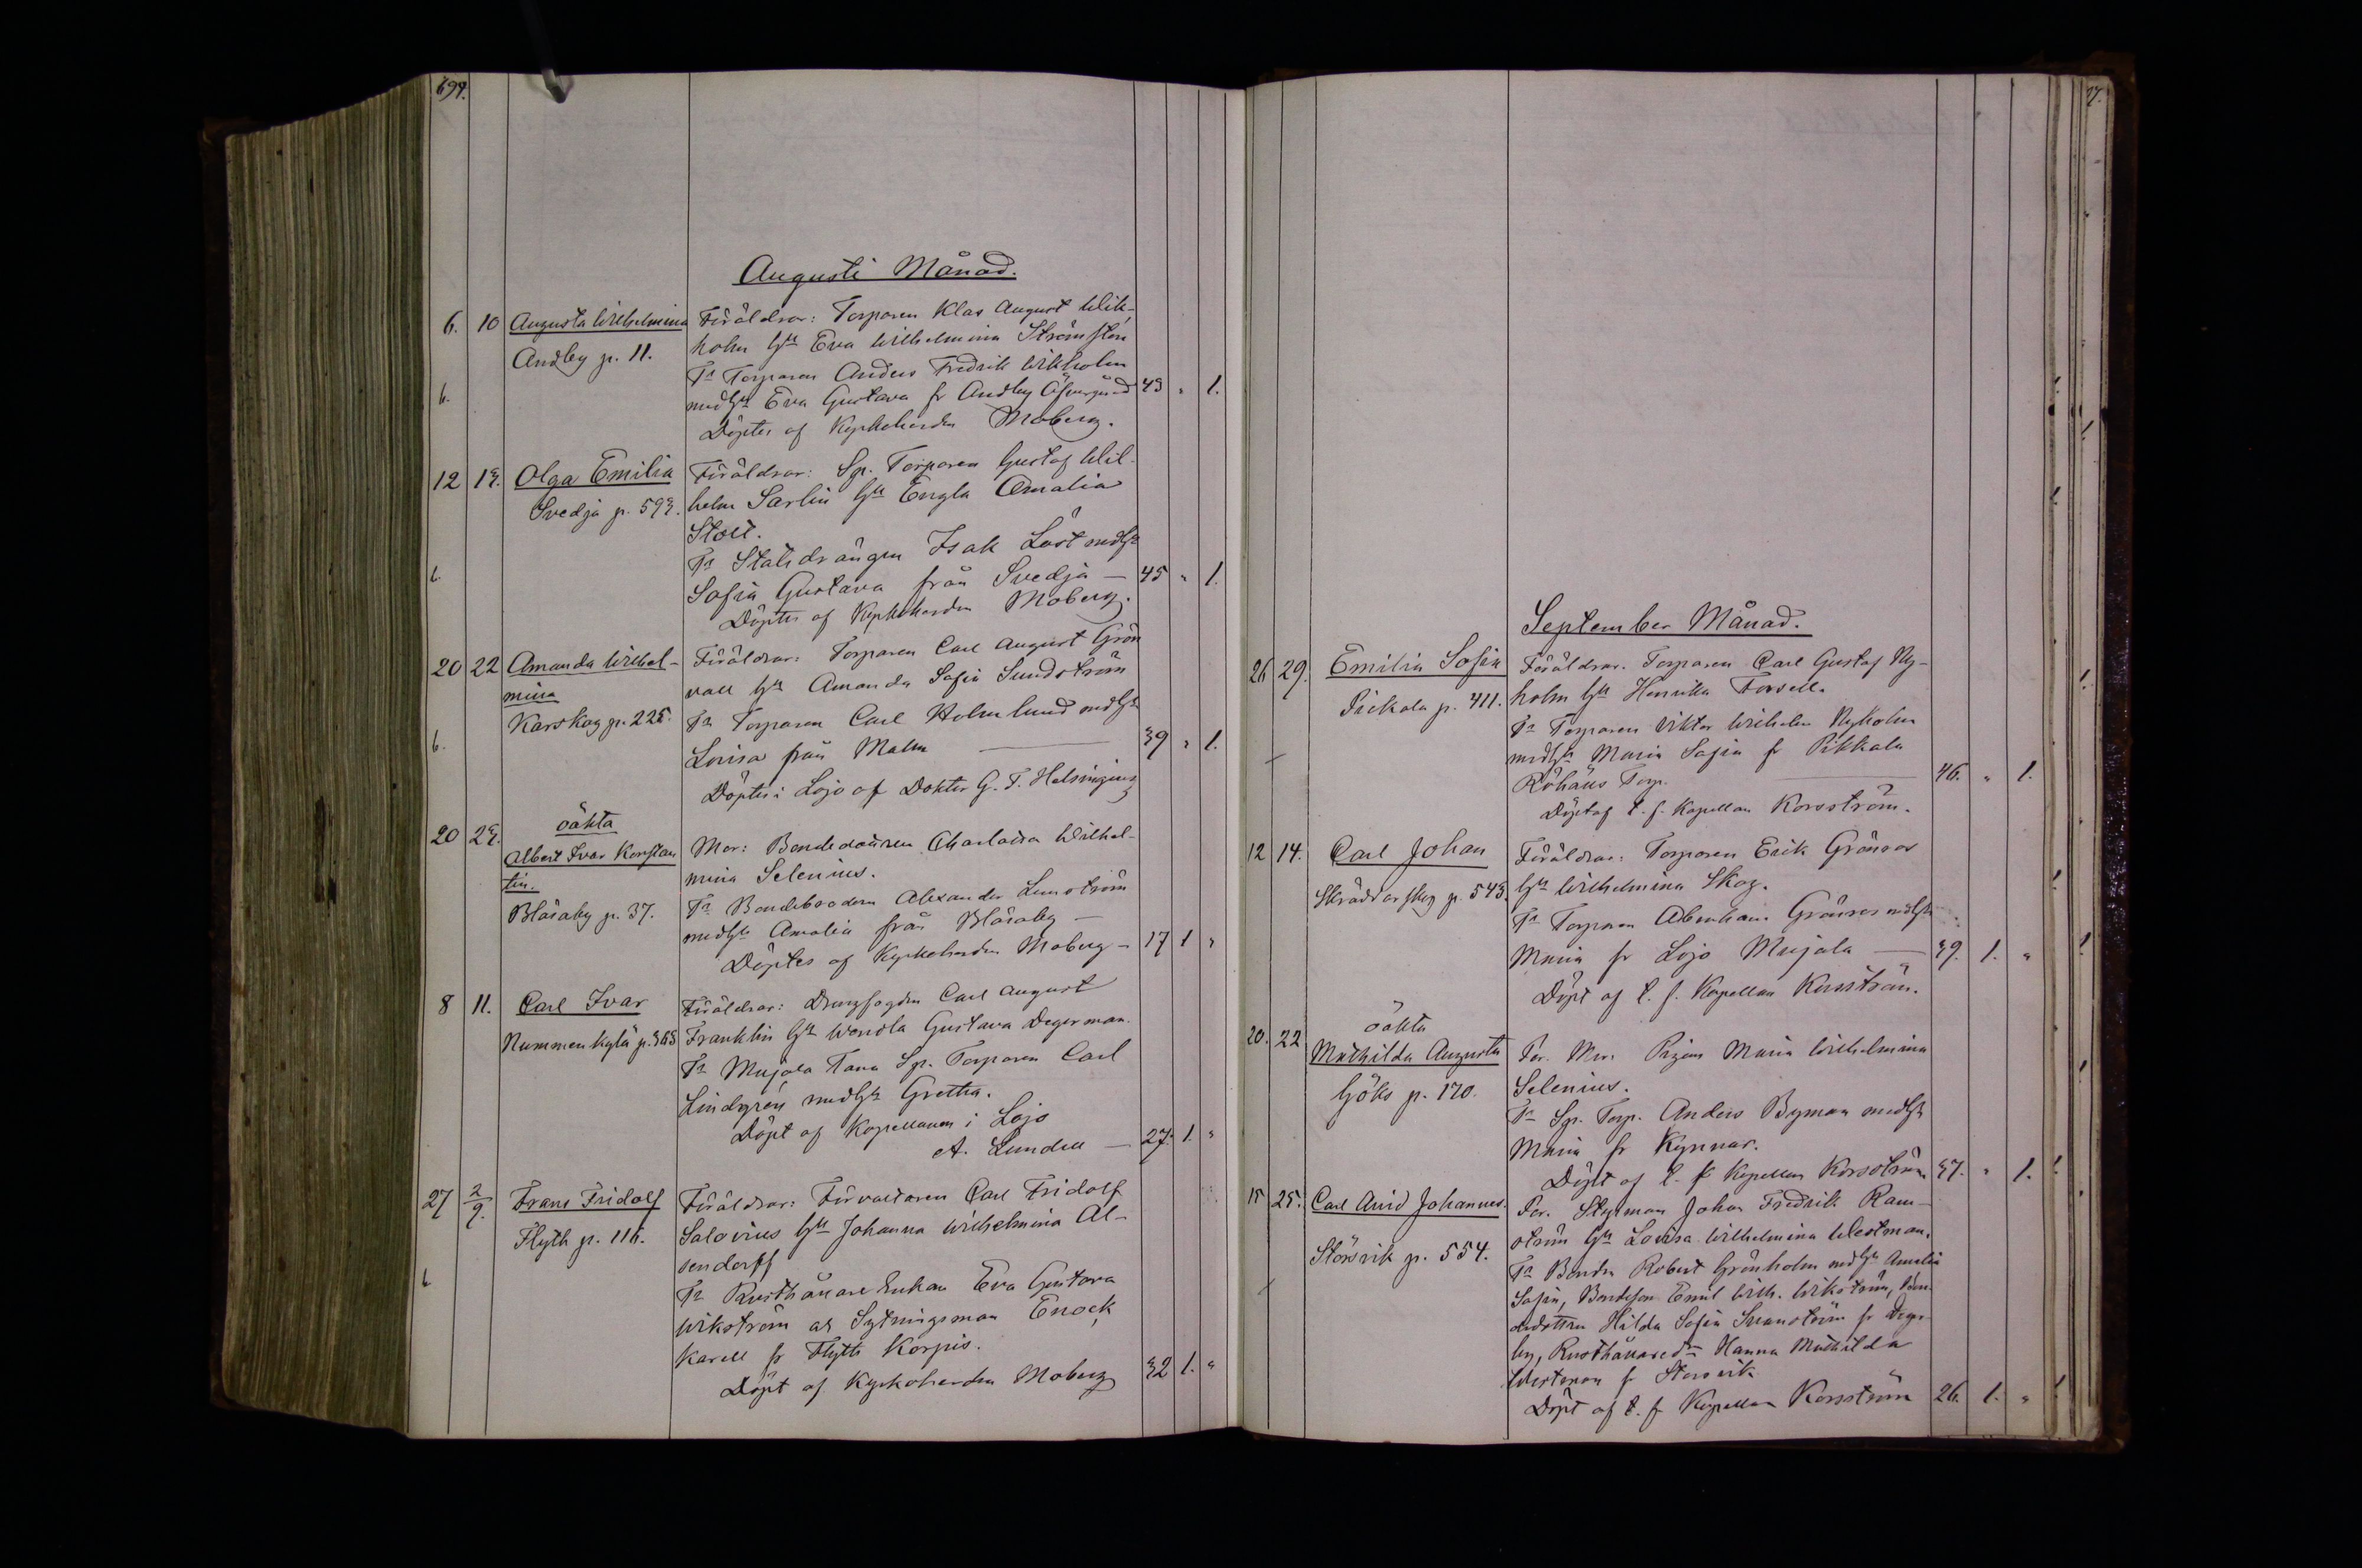 699.
Augusti Månad.
6. 10 Augusta Wilhelmina Föräldrar: Torparen Klas August Wik-
Andby p. 11. holm h:u Eva Wilhelmina Strömsten
Tr Torparen Anders Fredrik Wikholm
6. med h:u Eva Gustava fr Andby Öfvergård 43 " 1.
Döptes af Kyrkoherden Moberg.
12 13. Olga Emilia Föräldrar: Sp. Torparen Gustaf Wil-
Svedja p. 593. helm Sarlin h:u Engla Amalia
Stolt.
Tr Statsdrängen Isak Löst med h:u
6. Sofia Gustava från Svedja — 45 " 1.
Döptes af Kyrkoherden Moberg.
20 22 Amanda Wilhel- Föräldrar: Torparen Carl August Grön
mina vall h:u Amanda Sofia Sundström
Karskog p. 225. Tr Torparen Carl Holmlund med h:u
6. Lovisa från Malm — 39 " 1.
Döptes i Lojo af Doktor G. F. Helsingius
oäkta
20 23. Albert Ivar Konstan Mor: Bondedottren Charlotta Wilhel-
tin. mina Selenius.
Blåsaby p. 37. Tr Bondebrodern Alexander Lunström
med h:u Amalia från Blåsaby —
Döptes af Kyrkoherden Moberg — 17 1 "
8 11. Carl Ivar Föräldrar: Drengfogden Carl August
Nummenkylä p. 365 Franklin h:u Wendla Gustava Degerman.
Tr Mujola Tana Sp. Torparen Carl
Lindgrén med h:u Gretha.
Döpt af Kapellanen i Lojo
A. Lundell — 27. 1. "
27 2/9. Frans Fridolf Föräldrar: Förvaltaren Carl Fridolf
Flyth p. 116. Salovius h:u Johanna Wilhelmina Al-
sendorff
6 Tr Rusthållare Enkan Eva Gustava
Wikström och Sytningsman Enock
Karell fr Flyth Korpis.
Döpt af Kyrkoherden Moberg 32 1. "
September Månad.
26 29. Emilia Sofia Föräldrar. Torparen Carl Gustaf Ny-
Pickala p. 411. holm h:u Henrika Forsell.
Tr Torparen Viktor Wilhelm Nyholm
med h:u Maria Sofia fr Pikkala
Torp. — 46. " 1.
Döpt af t. f. Kapellan Korsström.
12 14. Carl Johan Föräldrar: Torparen Erik Grönros
Skräddarskog p. 543. h:u Wilhelmina Skog.
Tr Torparen Abraham Grönros med h:u
Maria fr Lojo Mujola — 39. 1. "
Döpt af t. f. Kapellan Korsström.
oäkta
20. 22 Mathilda Augusta För. Mor. Pigan Maria Wilhelmina
Göks p. 170. Selenius.
Tr Sp. Torp. Anders Byman med h:u
Maria fr Kypnar.
Döpt af t. f Kapellan Korsström 37. " 1.
15 25. Carl Arvid Johannes. För. Styrman Johan Fredrik Ram-
Störsvik p. 554. ström h:u Lovisa Wilhelmina Westman.
Tr Bonden Robert Grönholm med h:u Amalia
Sofia, Bondeson Emil Wilh. Wikström, Bon-
dedottren Hilda Sofia Svanström fr Deger-
by, Rusthållared:r Hanna Mathilda
Westman fr Störsvik
Döpt af t. f Kapellan Korsström 26. 1. "